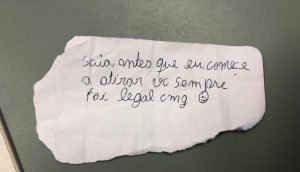 saia, antes que eu começe
a atirar vc sempre
foi legal cmg ☺